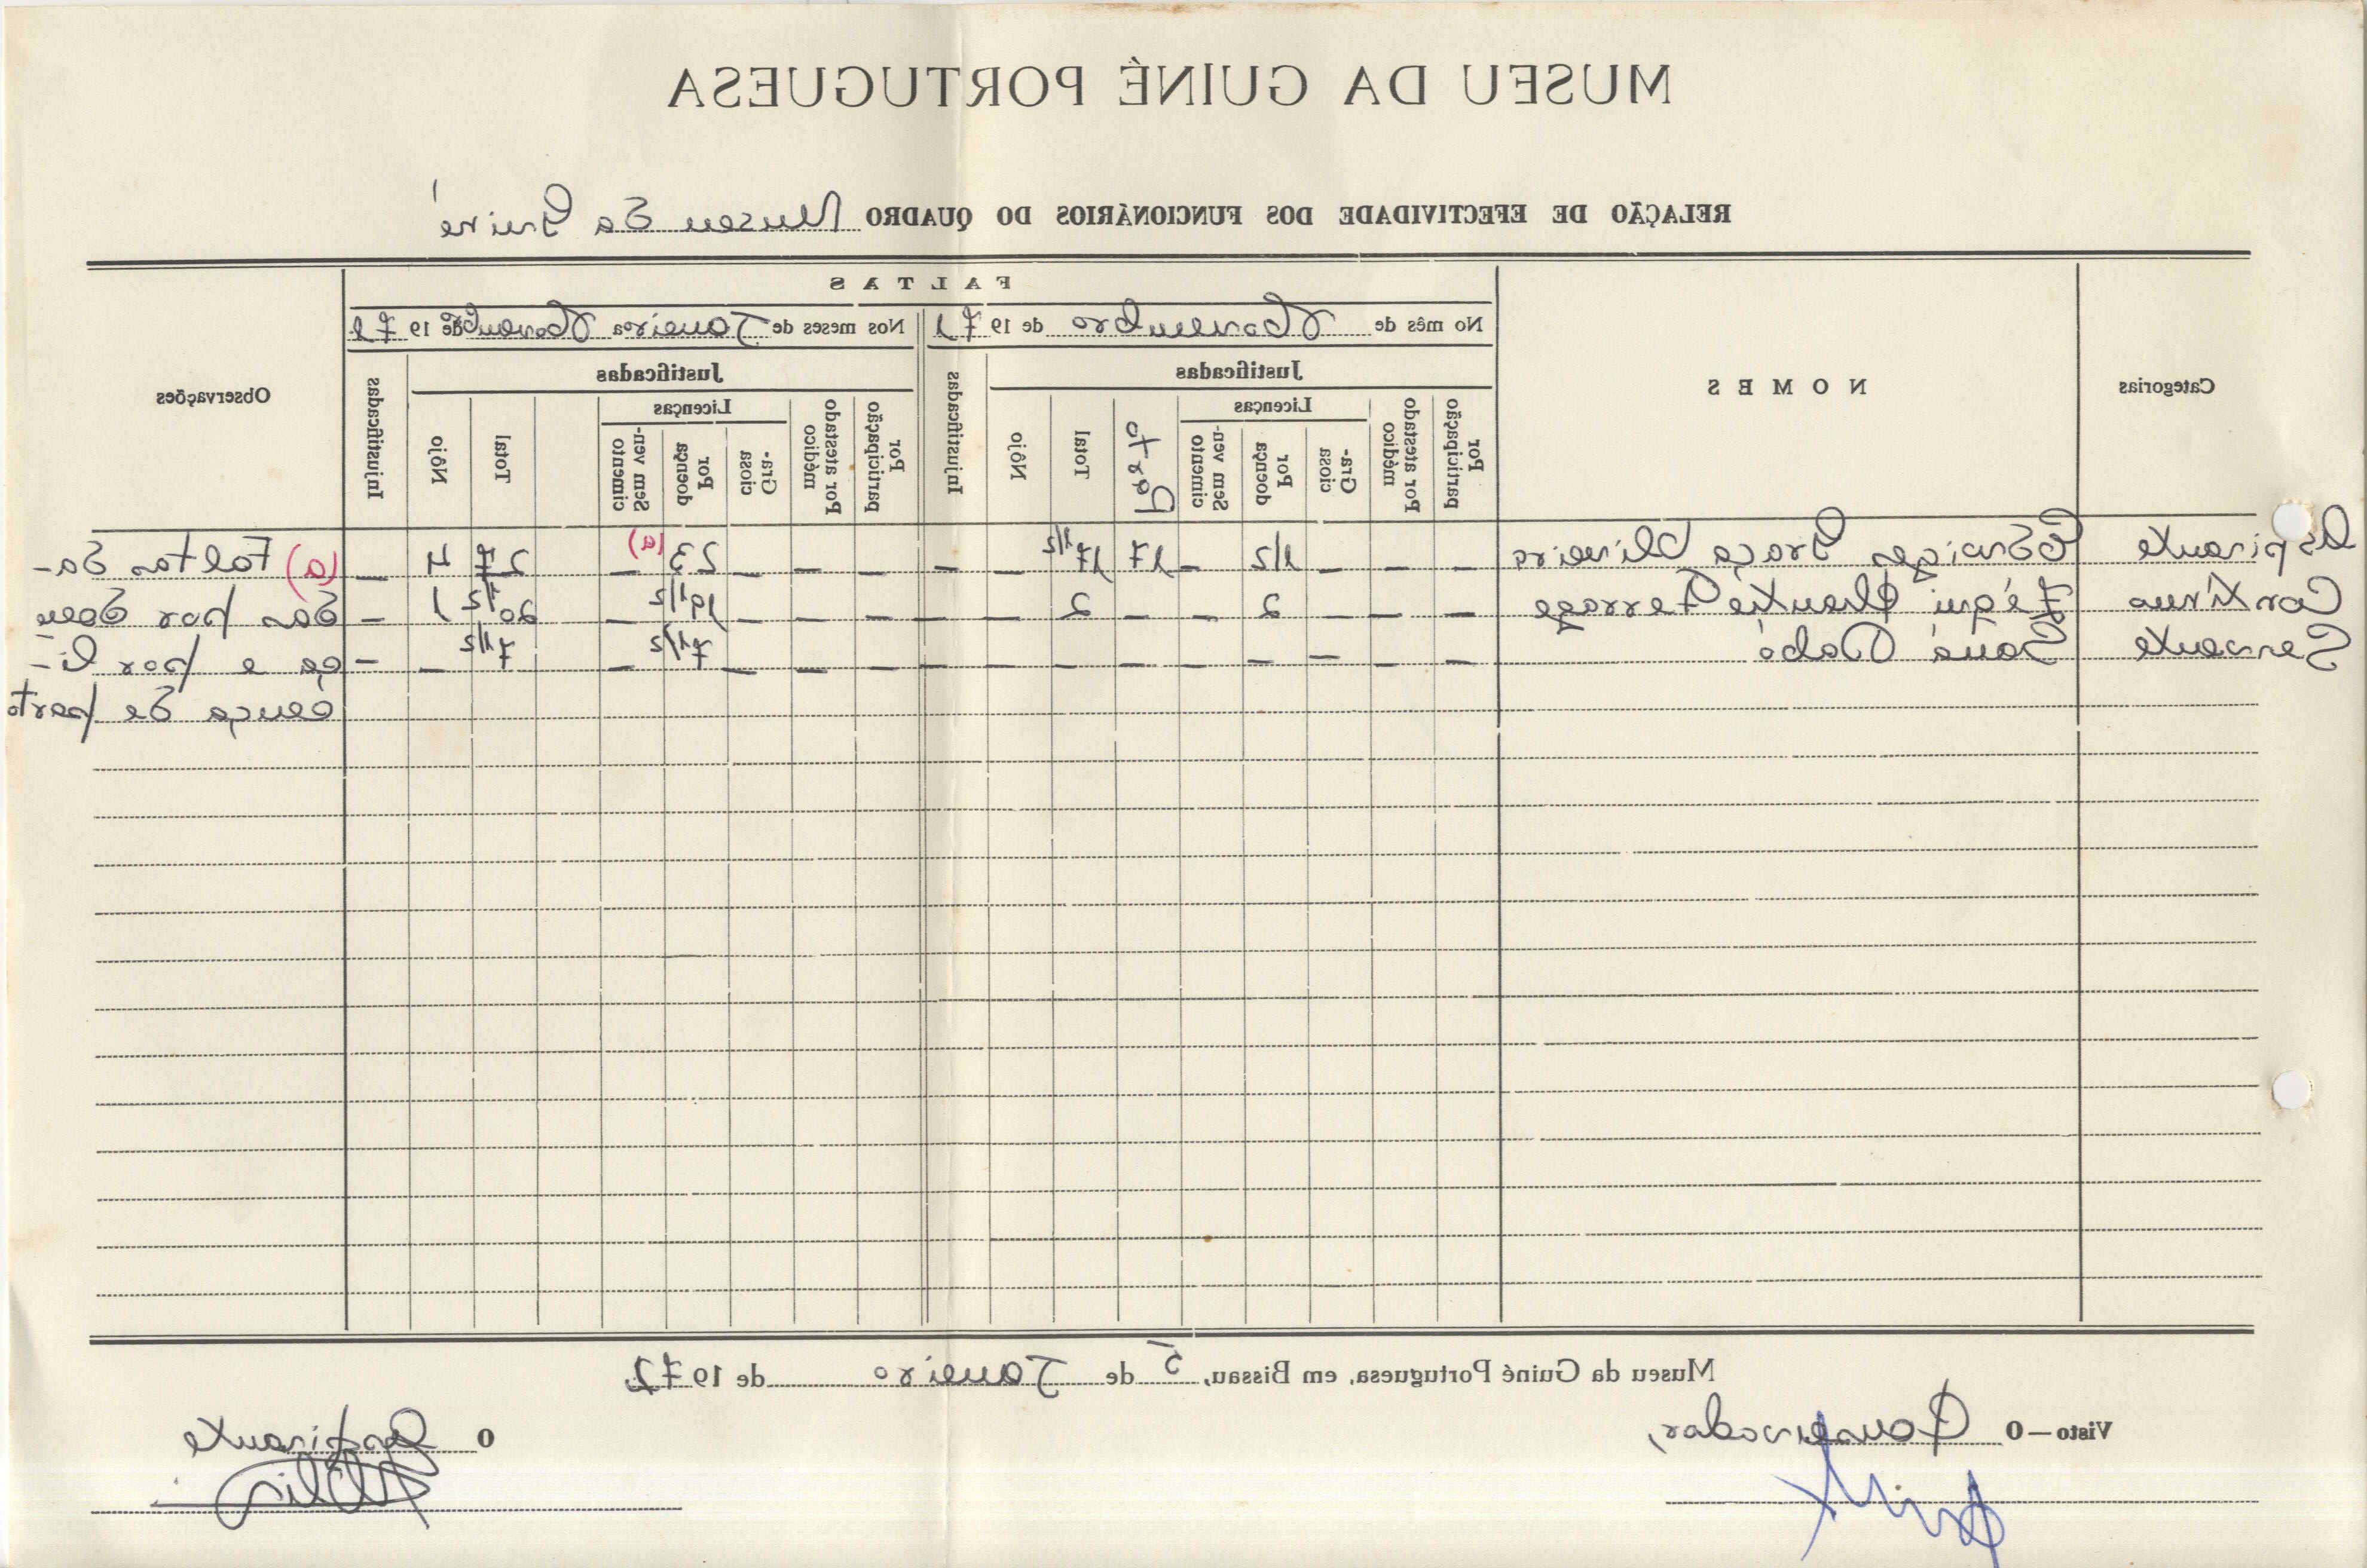 MUSEU DA GUINÉ PORTUGUESA
RELAÇÃO DE EFECTIVIDADE DOS FUNCIONÁRIOS DO QUADRO Museu da Guiné
Categorias
NOMES
FALTAS
No mês de Novembro de 1971
Nos meses de Janeiro a Novembro de 1971
Observações
Justificadas
Justificadas
Por participação
Por atestado médico
Licenças
Gra-ciosa
Por doença
Sem ven-cimento
Parto
Total
Nôjo
Injustificadas
Por participação
Por atestado médico
Licenças
Gra-ciosa
Por doença
Sem ven-cimento
Total
Nôjo
Injustificadas
Aspirante Graça Oliveira — — — 1/2 — 17 17 1/2 — — — — — 23 (a) — 27 4 — (a) Faltas da-
Contínuo — — — 2 — — 2 — — — — — 19 1/2 — 20 1/2 1 — das por doen
Servente — — — — — — — — — — — — 7 1/2 — 7 1/2 — — ça e por li-
cença de parto
Museu da Guiné Portuguesa, em Bissau, 5 de Janeiro de 1972
Visto—O Conservador,
O Aspirante